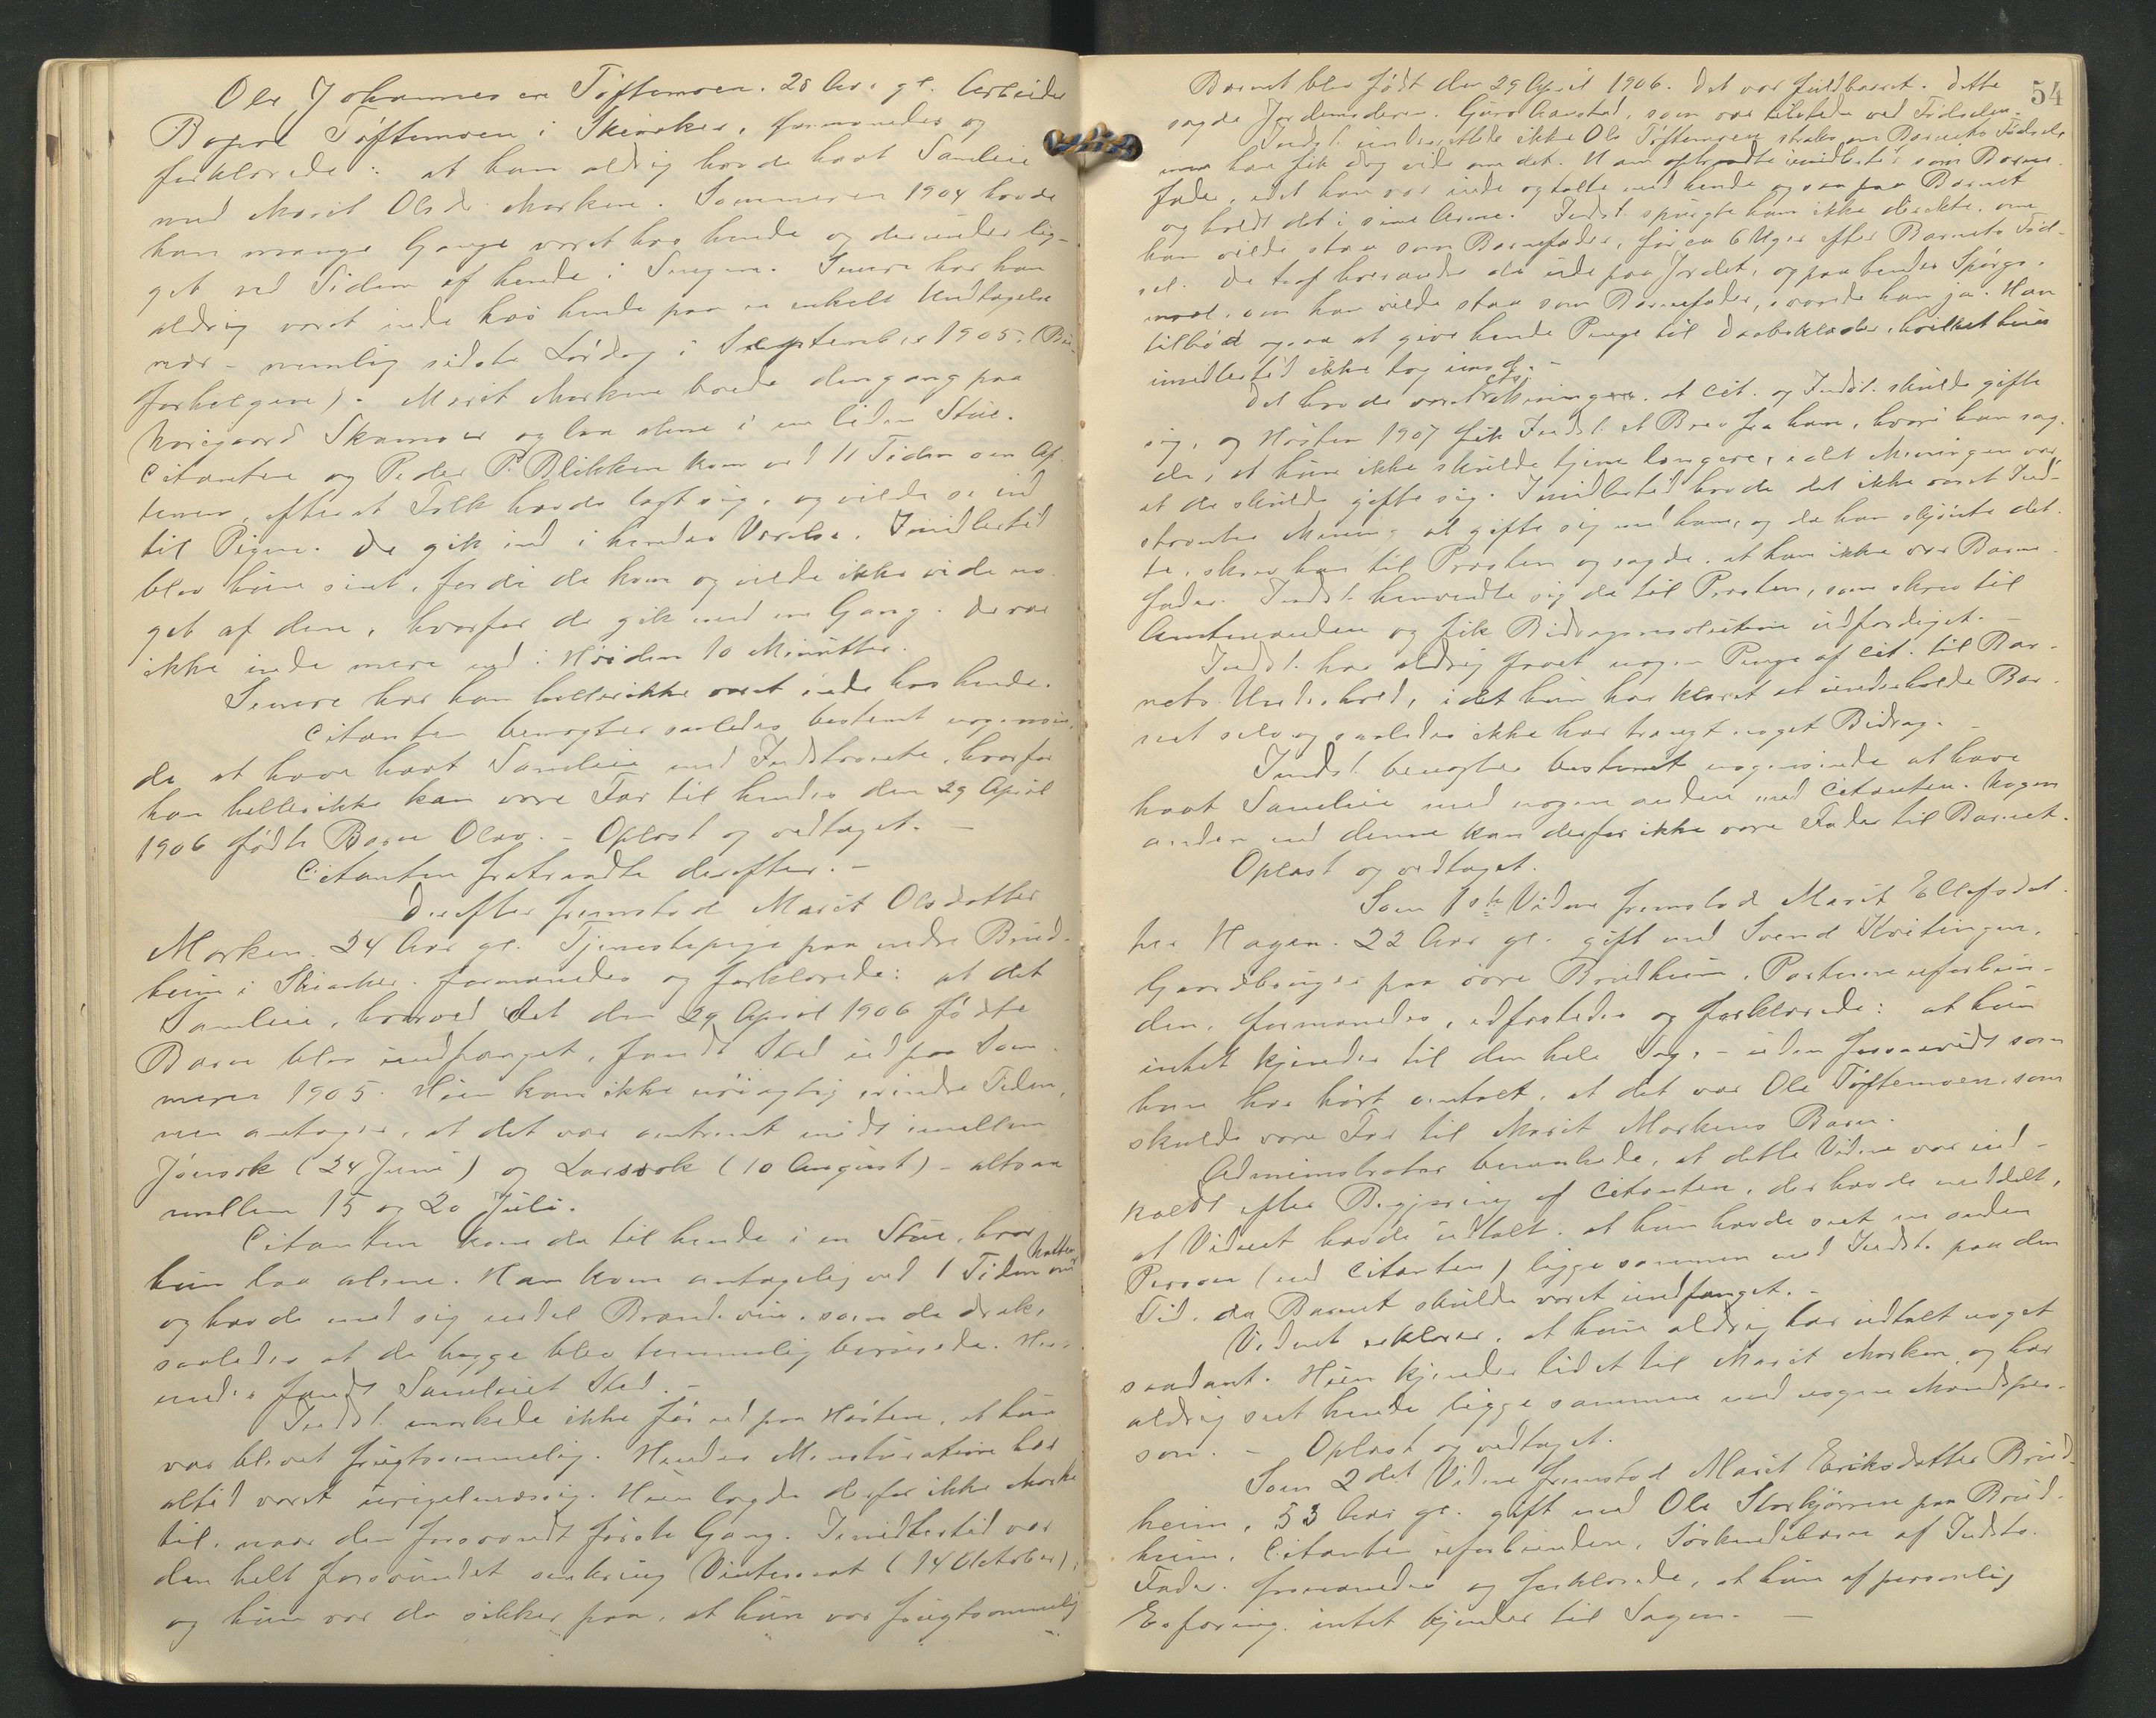 Ole Johannesen Tøftemoen. 28 Aar gl. Arbeider
Bopæl Tøftemoen i Skiaker, formanedes og
forklarede: at han aldrig havde havt Samleie
med Marit Olsd. Marken. Sommeren 1904 havde
han mange Gange været hos hende og derunder lig-
get ved Siden af hende i Sengen. Senere har han
aldrig været inde hos hende paa en enkelt Undtagelse
nær – nemlig sidste Lørdag i September 1905.
. Marit Marken boede dengang paa
Skamsar og laa alene i en liden Stue.
Citanten og Peder P. Blikken kom ved 11 Tiden om Af-
tenen, efterat Folk havde lagt sig, og vilde se ind
til Pigen. De gik ind i hendes Værelse. Imidlertid
blev hun sint, fordi de kom og vilde ikke vide no-
get af dem, hvorfor de gik med en Gang. De var
ikke inde mere end i Høiden 10 Minutter.
Senere har han hellerikke været inde hos hende.
Citanten benægter saaledes bestemt nogensin-
de at have havt Samleie med Indstævnte, hvorfor
han hellerikke kan være Far til hendes den 29 April
1906 fødte Barn Olav. – Oplæst og vedtaget. –
Citanten fratraadte derefter. –
Derefter fremstod Marit Olsdatter
Marken. 24 Aar gl. Tjenestepige paa nedre Brud-
heim i Skiaker. formanedes og forklarede: at det
Samleie, hvorved det den 29 April 1906 fødte
Barn blev undfanget, fandt Sted ud paa Som-
meren 1905. Hun kan ikke nøiagtig erindre Tiden,
men antager, at det var omtrent midt imellem
Jonsok (24 Juni) og Larsok (10 August) – altsaa
mellem 15 og 20 Juli.
Citanten kom da til hende i en Stue, hvor
hun laa alene. Han kom antagelig ved 1 Tiden om Natten
og havde med sig endel Brændevin, som de drak,
saaledes at de begge blev temmelig berusede. Her-
under fandt Samleiet Sted. –
Indst. mærkede ikke før ud paa Høsten, at hun
var blevet frugtsommelig. Hendes Menstruation har
altid været uregelmæssig. Hun lagde derfor ikke Mærke
til, naar den forsvandt første Gang. Imidlertid var
den helt forsvundet omkring Vinternat (14 Oktober),
og hun var da sikker paa, at hun var frugtsommelig
54
Barnet blev født den 29 April 1906. Det var fuldbaaret. Dette
sagde Jordemoderen. Guro Aanstad, som var tilstede ved Fødselen.
Indst. underrettede ikke Ole Tøftemoen straks om Barnets Fødsel
men han fik dog vide om det. Han optraadte imidlertid som Barne-
fader, idet han var inde og talte med hende og saa paa Barnet
og holdt det i sine Arme. Indst. spurgte ham ikke direkte, om
han vilde staa som Barnefader, før ca 6 Uger efter Barnets Fød-
sel. De traf hverandre da ude paa Jordet, og paa hendes Spørgs-
maal, om han vilde staa som Barnefader, svarede han ja. Han
tilbød ogsaa at give hende Penge til Daabsklæder, hvilket hun
imidlertid ikke tog imod. –
Det havde været Cits. Mening, at Cit. og Indst. skulde gifte
sig, og Høsten 1907 fik Indst. et Brev fra ham, hvori han sag-
de, at hun ikke skulde tjene længere, idet Meningen var
at de skulde gifte sig. Imidlertid havde det ikke været Ind-
stævntes Mening at gifte sig med ham, og da han skjønte det-
te, skrev han til Præsten og sagde, at han ikke var Barne-
fader. Indst. henvendte sig da til Præsten, som skrev til
Amtmanden og fik Bidragsresolution udfærdiget. –
Indst. har aldrig faaet nogen Penge af Cit. til Bar-
nets Underhold, idet hun har klaret at underholde Bar-
net selv og saaledes ikke har trængt noget Bidrag. –
Indst. benægter bestemt nogensinde at have
havt Samleie med nogen anden end Citanten. Nogen
anden end denne kan derfor ikke være Fader til Barnet.
Oplæst og vedtaget.
Som 1ste Vidne fremstod Marit Ellefsdat-
ter Hagen. 22 Aar gl. gift med Svend Kvitingen,
Gaardbruger paa øvre Brudheim. Parterne uforbun-
den, formanedes, edfæstedes og forklarede: at hun
intet kjender til den hele Sag, – uden forsaavidt som
hun har hørt omtalt, at det var Ole Tøftemoen, som
skulde være Far til Marit Markens Barn.
Administrator bemærkede, at dette Vidne var ind-
kaldt efter Begjæring af Citanten, der havde meddelt,
at Vidnet havde udtalt, at hun havde seet en anden
Person (end Citanten) ligge sammen med Indst. paa den
Tid, da Barnet skulde været undfanget. –
Vidnet erklærer, at hun aldrig har udtalt noget
saadant. Hun kjender lidet til Marit Marken og har
aldrig seet hende ligge sammen med nogen Mandsper-
son. – Oplæst og vedtaget.
Som 2det Vidne fremstod Marit Eriksdatter Brud-
heim, 53 Aar gl. gift med Ole Storkjørren paa Brud-
heim, Citanten uforbunden, Søskendebarn af Indsts.
Fader. formanedes og forklarede, at hun af personlig
Erfaring intet kjender til Sagen. –